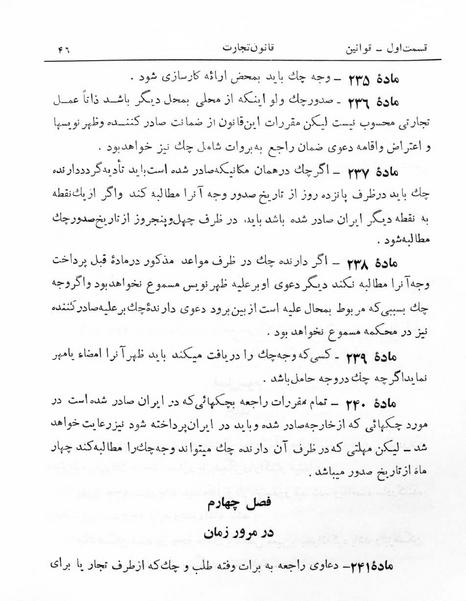 قسمت اول ــ قوانین قانون تجارت ۴۶
مادهٔ ۲۳۵ ــ وجه چك باید بمحض ارائه کارسازی شود .
مادهٔ ۲۳۶ ــ صدور چك ولو اینکه از محلی بمحل دیگر باشد ذاتاً عمل
تجارتی محسوب نیست لیکن مقررات این قانون از ضمانت صادر کننده وظهر نویسها
و اعتراض واقامه دعوی ضمان راجع به بروات شامل چك نیز خواهد بود .
مادهٔ ۲۳۷ ــ اگر چك در همان مکانیکه صادر شده است باید تأدیه گردد دارنده
چك باید در ظرف پانزده روز از تاریخ صدور وجه آنرا مطالبه کند واگر از یك نقطه
به نقطه دیگر ایران صادر شده باشد باید، در ظرف چهل و پنجروز از تاریخ صدور چك
مطالبه شود .
مادهٔ ۲۳۸ ــ اگر دارنده چك در ظرف مواعد مذکور در مادهٔ قبل پرداخت
وجه آنرا مطالبه نکند دیگر دعوی او بر علیه ظهر نویس مسموع نخواهد بود واگر وجه
چك بسببی که مربوط بمحال علیه است از بین برود دعوی دارندهٔ چك بر علیه صادر کننده
نیز در محکمه مسموع نخواهد بود .
مادهٔ ۲۳۹ ــ کسی که وجه چك را دریافت میکند باید ظهر آنرا امضاء یا مهر
نماید اگر چه چك در وجه حامل باشد .
مادهٔ ۲۴۰ ــ تمام مقررات راجعه بچکهائی که در ایران صادر شده است در
مورد چکهائی که از خارجه صادر شده و باید در ایران پرداخته شود نیز رعایت خواهد
شد ــ لیکن مهلتی که در ظرف آن دارنده چك میتواند وجه چك را مطالبه کند چهار
ماه از تاریخ صدور میباشد .
فصل چهارم
در مرور زمان
مادهٔ ۲۴۱ــ دعاوی راجعه به برات وفته طلب و چك که از طرف تجار یا برای